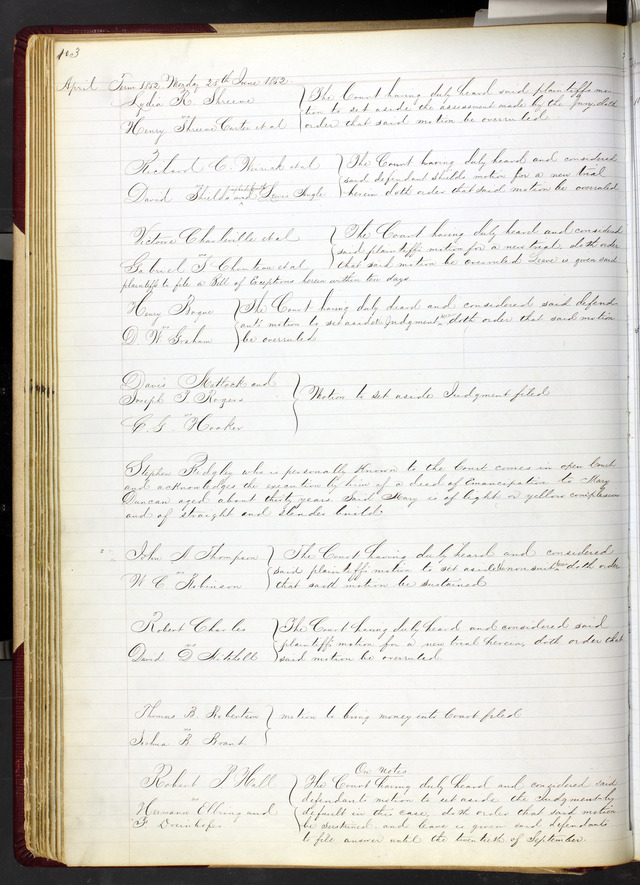 April Term 1852 Monday 28th June 1852
Lydia R. Shreeve
vs
Henry Shreeve Carter et al
The Court having duly heard said plaintiffs mo-
tion to set aside the assessment made by the Jury doth
order that said motion be overruled
Richard C. et al
vs
David Shields and Lewis
The Court having duly heard and considered
said defendant Shields motion for a new trial
herein doth order that said motion be overruled
Victoire Charleville et al
vs
Gabriel S. Chouteau et al
The Court having duly heard and considered
said plaintiffs motion for a new trial doth order
that said motion be overruled Leave is given said
plaintiffs to file a Bill of Exceptions herein within ten days
Henry Bogue
vs
D. W. Graham
The Court having duly heard and considered said defend-
ants motion to set aside Judgment doth order that said motion
be overruled
Davis and
Joseph S Rogers
vs
C. G. Hooker
Motion to set aside Judgment filed
Stephen who is personally Known to the Court comes in open Court
and acknowledges the execution by him of a deed of Emancipation to Mary
Duncan aged about thirty years Said Mary is of light or yellow complexion
and of straight and slender build
John A Thompson
vs
W. C. Robinson
The Court having duly heard and considered
said plaintiffs motion to set aside nonsuit doth order
that said motion be sustained
Robert Charles
vs
David D. Mitchell
The Court having duly heard and considered said
plaintiffs motion for a new trial herein, doth order that
said motion be overruled.
Thomas B. Robertson
vs
Joshua B Brant
motion to bring money into Court filed
Robert P Hall
vs
Hermann and
F.
On Notes
The Court having duly heard and considered said
defendants motion to set aside the Judgment by
default in this case, doth order that said motion
be sustained and leave is given said defendants
to file answer until the twentieth of September.